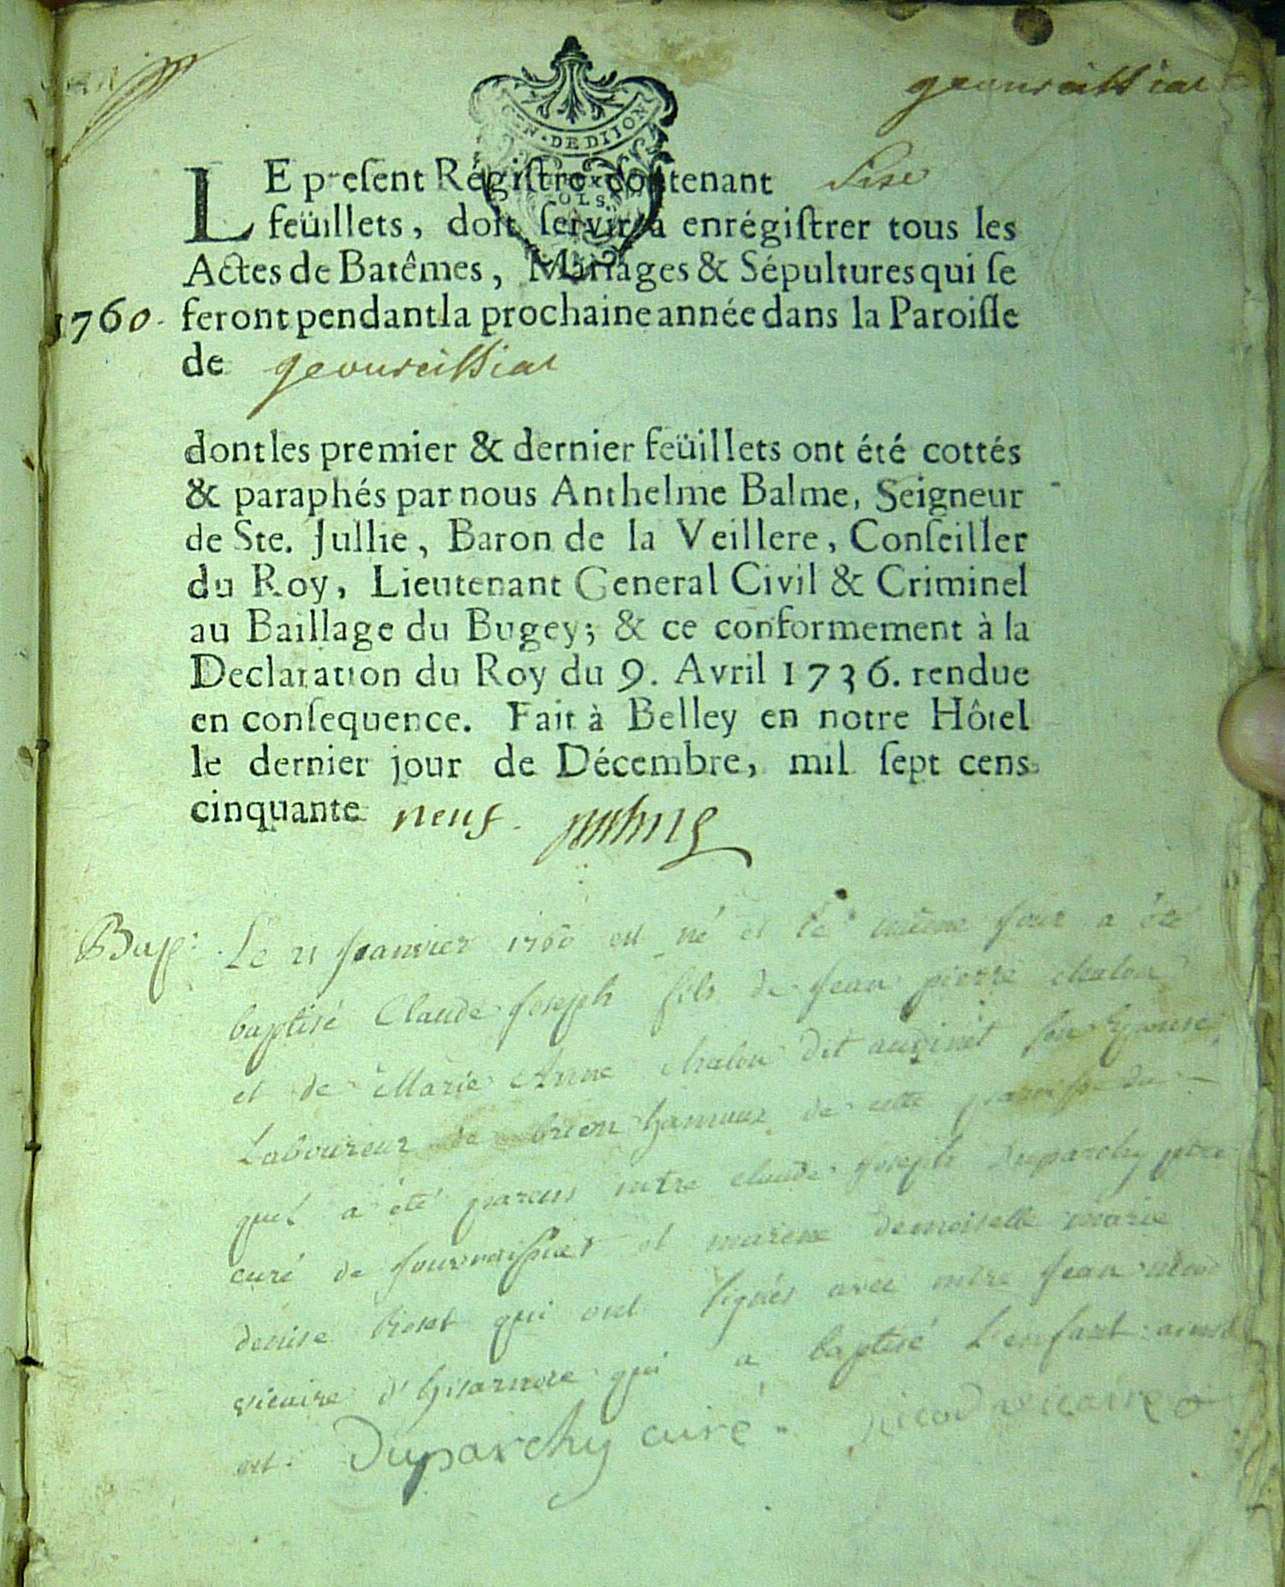 geovreissiat
GEN. DE DIJON
LE present Régistre contenant Sise
feüillets, doit servir à enrégistrer tous les
Actes de Batêmes, Mariages & Sépultures qui se
1760. feront pendant la prochaine année dans la Paroisse
de geovreissiat
dont les premier & dernier feüillets ont été cottés
& paraphés par nous Anthelme Balme, Seigneur
de Ste. Jullie, Baron de la Veillere, Conseiller
du Roy, Lieutenant General Civil & Criminel
au Baillage du Bugey; & ce conformement à la
Declaration du Roy du 9. Avril 1736. rendue
en consequence. Fait à Belley en notre Hôtel
le dernier jour de Décembre, mil sept cens
cinquante neuf.
Bap: Le 21 Janvier 1760 est né et le même jour a été
baptisé Claude Joseph fils de Jean pierre chalon
et de Marie Anne chalon dit son Epouse
Laboureur de de cette paroisse du
quel a été parein mtre claude Joseph Duparchy ptre
curé de et mareine demoiselle marie
denise qui ont signés avec mtre Jean
vicaire d'hisarnore qui a baptisé L'enfant ainsi
est. Duparchy curé. vicaire